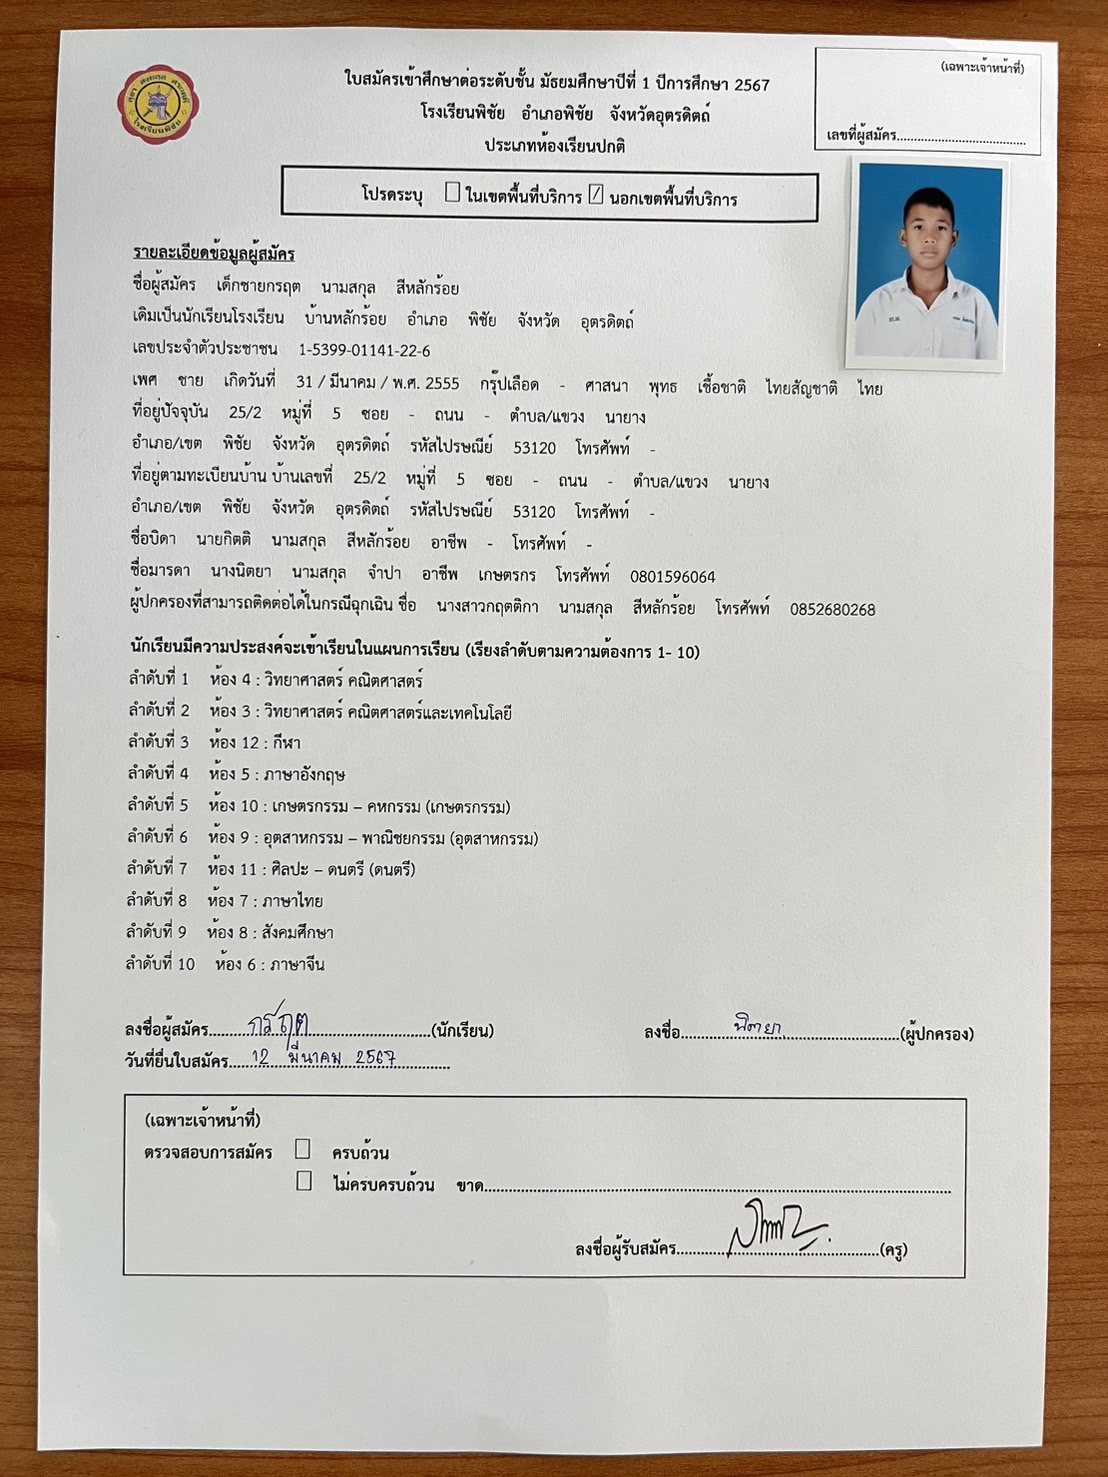 ใบสมัครเข้าศึกษาต่อระดับชั้น มัธยมศึกษาปีที่ 1 ปีการศึกษา 2567
โรงเรียนพิชัย อำเภอพิชัย จังหวัดอุตรดิตถ์
ประเภทห้องเรียนปกติ
(เฉพาะเจ้าหน้าที่)
เลขที่ผู้สมัคร....................................
โรงเรียนพิชัย
โปรดระบุ ☐ ในเขตพื้นที่บริการ ☑ นอกเขตพื้นที่บริการ
รายละเอียดข้อมูลผู้สมัคร
ชื่อผู้สมัคร เด็กชายกรฤต นามสกุล สีหลักร้อย
เดิมเป็นนักเรียนโรงเรียน บ้านหลักร้อย อำเภอ พิชัย จังหวัด อุตรดิตถ์
เลขประจำตัวประชาชน 1-5399-01141-22-6
เพศ ชาย เกิดวันที่ 31 / มีนาคม / พ.ศ. 2555 กรุ๊ปเลือด - ศาสนา พุทธ เชื้อชาติ ไทยสัญชาติ ไทย
ที่อยู่ปัจจุบัน 25/2 หมู่ที่ 5 ซอย - ถนน - ตำบล/แขวง นายาง
อำเภอ/เขต พิชัย จังหวัด อุตรดิตถ์ รหัสไปรษณีย์ 53120 โทรศัพท์ -
ที่อยู่ตามทะเบียนบ้าน บ้านเลขที่ 25/2 หมู่ที่ 5 ซอย - ถนน - ตำบล/แขวง นายาง
อำเภอ/เขต พิชัย จังหวัด อุตรดิตถ์ รหัสไปรษณีย์ 53120 โทรศัพท์ -
ชื่อบิดา นายกิตติ นามสกุล สีหลักร้อย อาชีพ - โทรศัพท์ -
ชื่อมารดา นางนิตยา นามสกุล จำปา อาชีพ เกษตรกร โทรศัพท์ 0801596064
ผู้ปกครองที่สามารถติดต่อได้ในกรณีฉุกเฉิน ชื่อ นางสาวกฤตติกา นามสกุล สีหลักร้อย โทรศัพท์ 0852680268
นักเรียนมีความประสงค์จะเข้าเรียนในแผนการเรียน (เรียงลำดับตามความต้องการ 1- 10)
ลำดับที่ 1 ห้อง 4 : วิทยาศาสตร์ คณิตศาสตร์
ลำดับที่ 2 ห้อง 3 : วิทยาศาสตร์ คณิตศาสตร์และเทคโนโลยี
ลำดับที่ 3 ห้อง 12 : กีฬา
ลำดับที่ 4 ห้อง 5 : ภาษาอังกฤษ
ลำดับที่ 5 ห้อง 10 : เกษตรกรรม – คหกรรม (เกษตรกรรม)
ลำดับที่ 6 ห้อง 9 : อุตสาหกรรม – พาณิชยกรรม (อุตสาหกรรม)
ลำดับที่ 7 ห้อง 11 : ศิลปะ – ดนตรี (ดนตรี)
ลำดับที่ 8 ห้อง 7 : ภาษาไทย
ลำดับที่ 9 ห้อง 8 : สังคมศึกษา
ลำดับที่ 10 ห้อง 6 : ภาษาจีน
ลงชื่อผู้สมัคร.......กรฤต.......(นักเรียน) ลงชื่อ.......นิตยา.......(ผู้ปกครอง)
วันที่ยื่นใบสมัคร....12 มีนาคม 2567..........
(เฉพาะเจ้าหน้าที่)
ตรวจสอบการสมัคร ☐ ครบถ้วน
☐ ไม่ครบครบถ้วน ขาด..........................................................
ลงชื่อผู้รับสมัคร..............................(ครู)